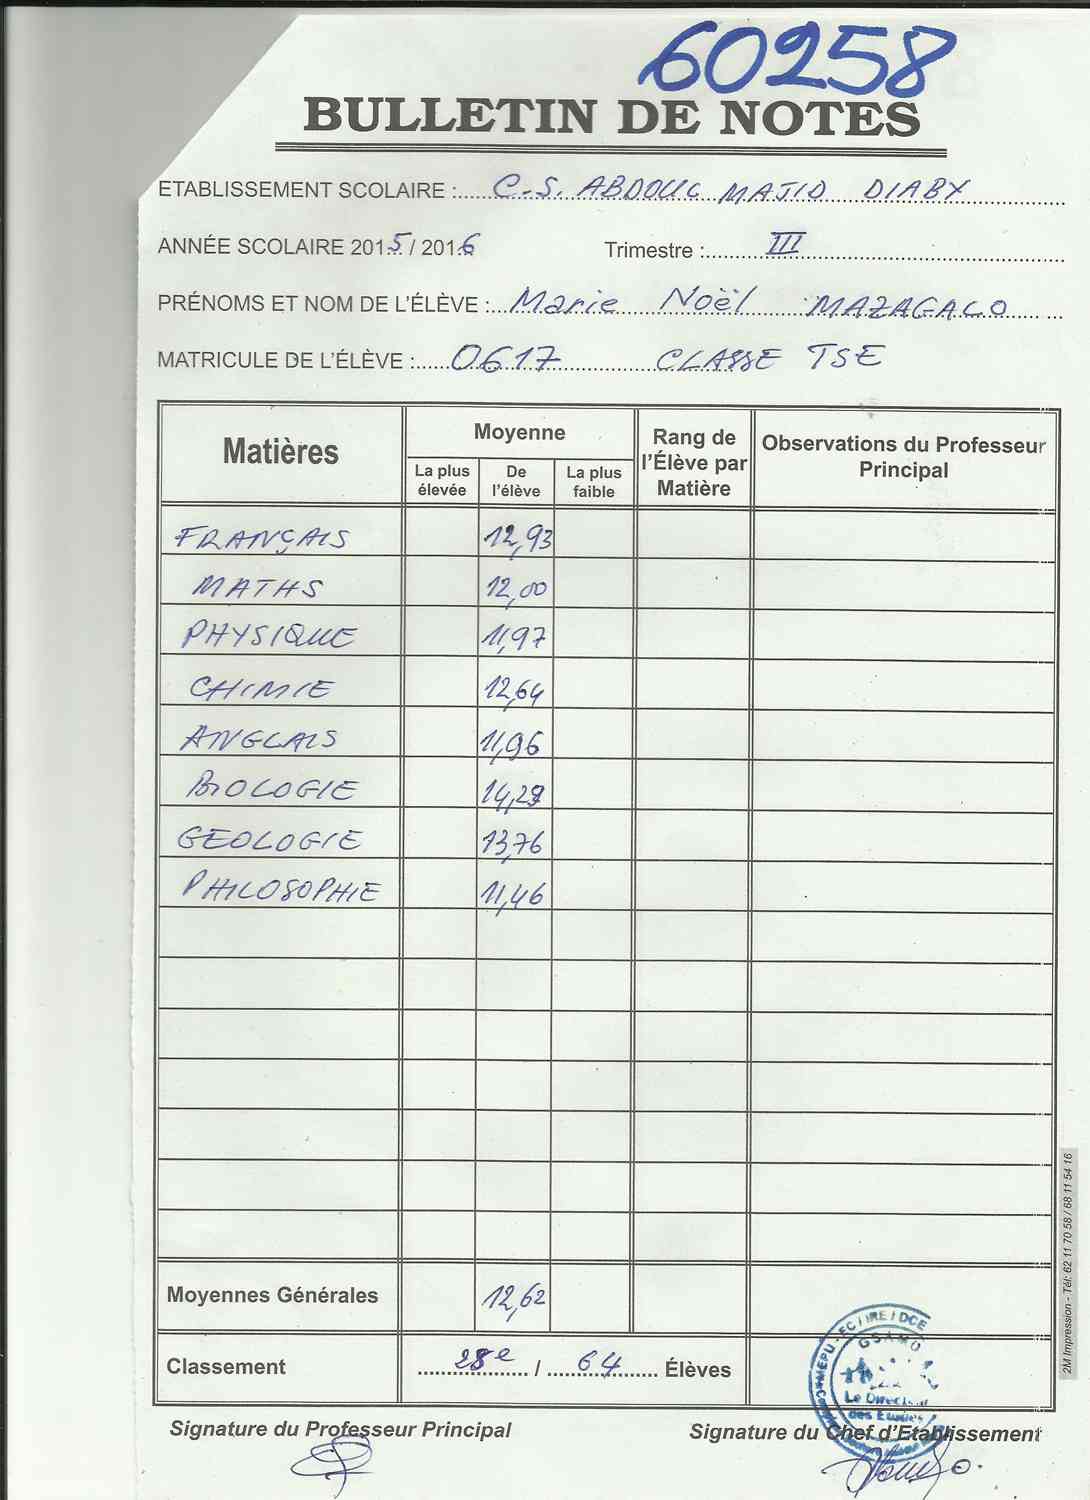 60258
BULLETIN DE NOTES
ETABLISSEMENT SCOLAIRE : C.S. ABDOUL MAJID DIABY
ANNÉE SCOLAIRE 2015 / 2016 Trimestre : III
PRÉNOMS ET NOM DE L'ÉLÈVE : Marie Noël MAZAGALO
MATRICULE DE L'ÉLÈVE : 0617 CLASSE TSE
Matières Moyenne Rang de l'Élève par Matière Observations du Professeur Principal
La plus élevée De l'élève La plus faible
FRANÇAIS 12,93
MATHS 12,00
PHYSIQUE 11,97
CHIMIE 12,64
ANGLAIS 11,96
BIOLOGIE 14,28
GEOLOGIE 13,76
PHILOSOPHIE 11,46
Moyennes Générales 12,62
Classement 28e / 64 Élèves
Signature du Professeur Principal Signature du Chef d'Etablissement
GSAMD
Le Directeur
des Etudes
2M Impression - Tél: 62 11 70 58 / 68 11 54 16